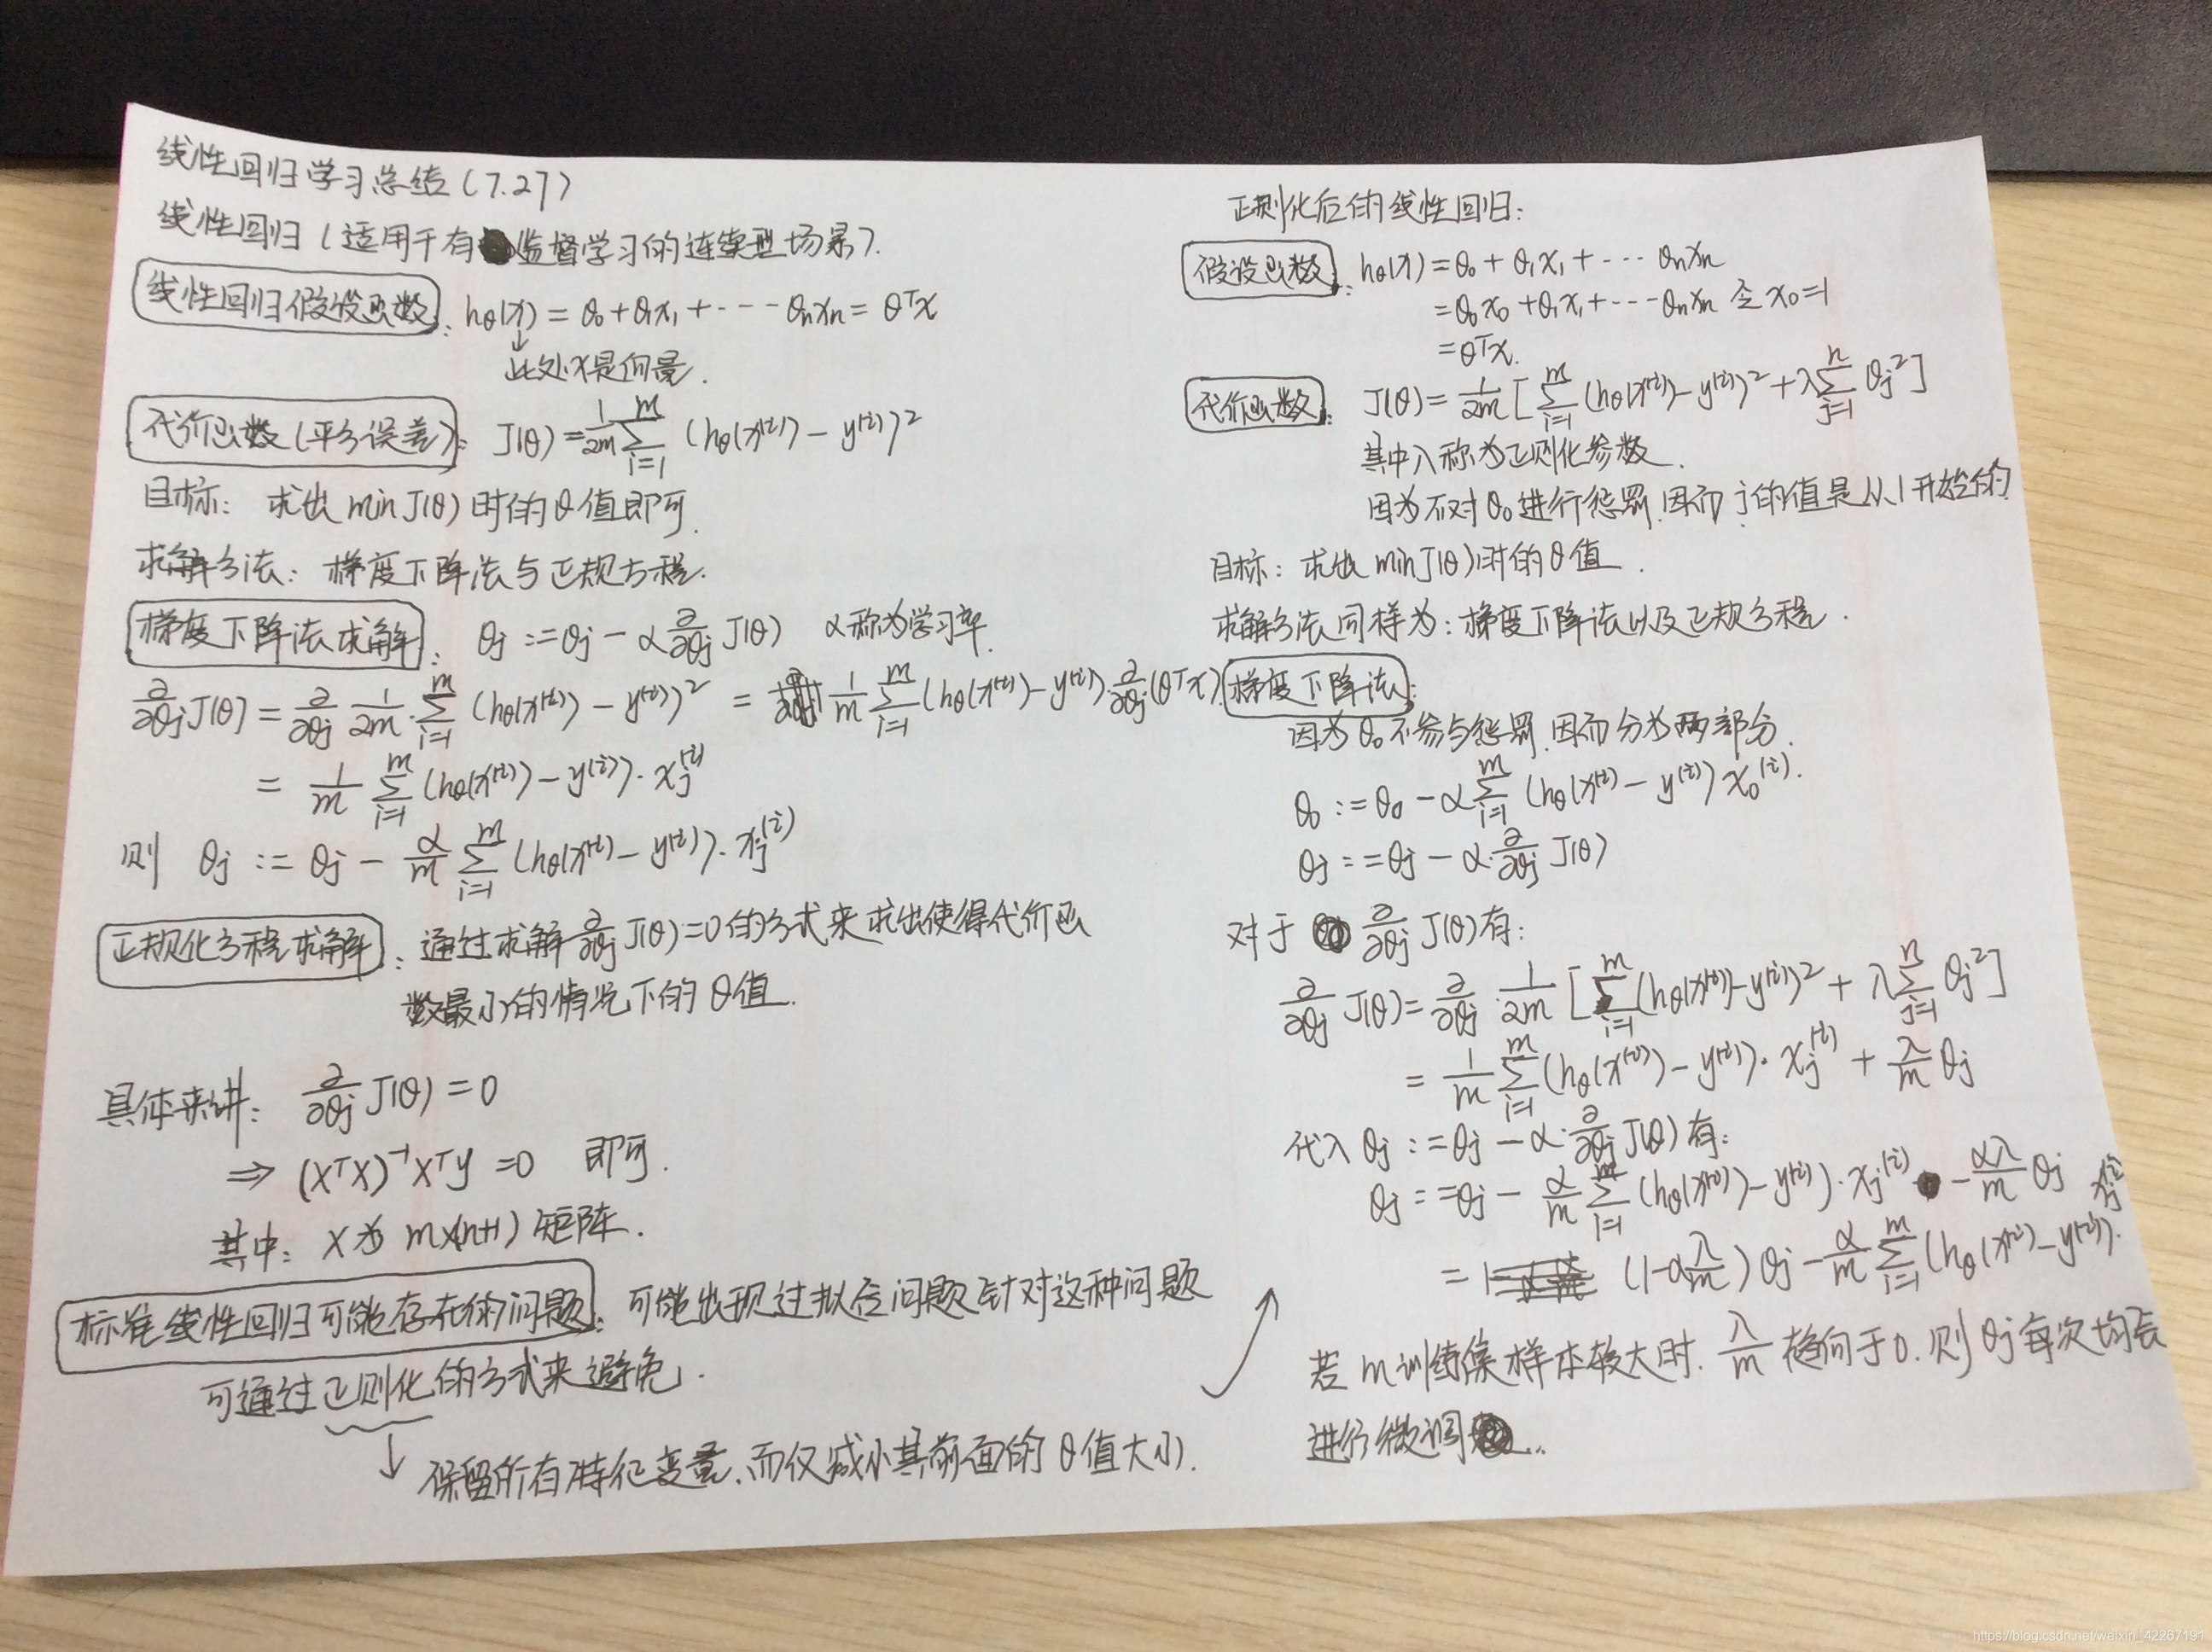 线性回归学习总结(7.27)
线性回归(适用于有监督学习的连续型场景).
线性回归假设函数: hθ(x) = θ₀ + θ₁x₁ + --- θₙxₙ = θᵀx
↓
此处x是向量.
代价函数(平方误差): J(θ) = 1/2m ∑_{i=1}^{m} (hθ(x⁽ⁱ⁾) - y⁽ⁱ⁾)²
目标: 求出 min J(θ) 时的 θ 值即可.
求解方法: 梯度下降法与正规方程.
梯度下降法求解: θj := θj - α ∂/∂θj J(θ) α称为学习率.
∂/∂θj J(θ) = ∂/∂θj 1/2m · ∑_{i=1}^{m} (hθ(x⁽ⁱ⁾) - y⁽ⁱ⁾)² = 1/m ∑_{i=1}^{m} (hθ(x⁽ⁱ⁾) - y⁽ⁱ⁾) · ∂/∂θj (θᵀx).
= 1/m ∑_{i=1}^{m} (hθ(x⁽ⁱ⁾) - y⁽ⁱ⁾) · xj⁽ⁱ⁾
则 θj := θj - α/m ∑_{i=1}^{m} (hθ(x⁽ⁱ⁾) - y⁽ⁱ⁾) · xj⁽ⁱ⁾
正规化方程求解: 通过求解 ∂/∂θj J(θ) = 0 的方式来求出使得代价函
数最小的情况下的 θ 值.
具体来讲: ∂/∂θj J(θ) = 0
⇒ (XᵀX)⁻¹Xᵀy = 0 即可.
其中: X 为 m×(n+1) 矩阵.
标准线性回归可能存在的问题: 可能出现过拟合问题针对这种问题
可通过正则化的方式来避免.
↓ 保留所有特征变量,而仅减小其前面的 θ 值大小.
正则化后的线性回归:
假设函数: hθ(x) = θ₀ + θ₁x₁ + --- θₙxₙ
= θ₀x₀ + θ₁x₁ + --- θₙxₙ 令 x₀=1
= θᵀx.
代价函数: J(θ) = 1/2m [∑_{i=1}^{m} (hθ(x⁽ⁱ⁾) - y⁽ⁱ⁾)² + λ∑_{j=1}^{n} θj²]
其中λ称为正则化参数.
因为不对 θ₀ 进行惩罚,因而 j 的值是从 1 开始的
目标: 求出 min J(θ) 时的 θ 值.
求解方法同样为: 梯度下降法以及正规方程.
梯度下降法:
因为 θ₀ 不参与惩罚,因而分为两部分.
θ₀ := θ₀ - α ∑_{i=1}^{m} (hθ(x⁽ⁱ⁾ - y⁽ⁱ⁾) x₀⁽ⁱ⁾.
θj := θj - α · ∂/∂θj J(θ)
对于 ∂/∂θj J(θ) 有:
∂/∂θj J(θ) = ∂/∂θj · 1/2m [∑_{i=1}^{m} (hθ(x⁽ⁱ⁾) - y⁽ⁱ⁾)² + λ∑_{j=1}^{n} θj²]
= 1/m ∑_{i=1}^{m} (hθ(x⁽ⁱ⁾) - y⁽ⁱ⁾) · xj⁽ⁱ⁾ + λ/m θj
代入 θj := θj - α · ∂/∂θj J(θ) 有:
θj := θj - α/m ∑_{i=1}^{m} (hθ(x⁽ⁱ⁾) - y⁽ⁱ⁾) · xj⁽ⁱ⁾ - αλ/m θj
= (1-αλ/m) θj - α/m ∑_{i=1}^{m} (hθ(x⁽ⁱ⁾) - y⁽ⁱ⁾) · xj⁽ⁱ⁾
若 m 训练集样本较大时. λ/m 趋向于 0. 则 θj 每次均会
进行微调..
https://blog.csdn.net/weixin_42267191